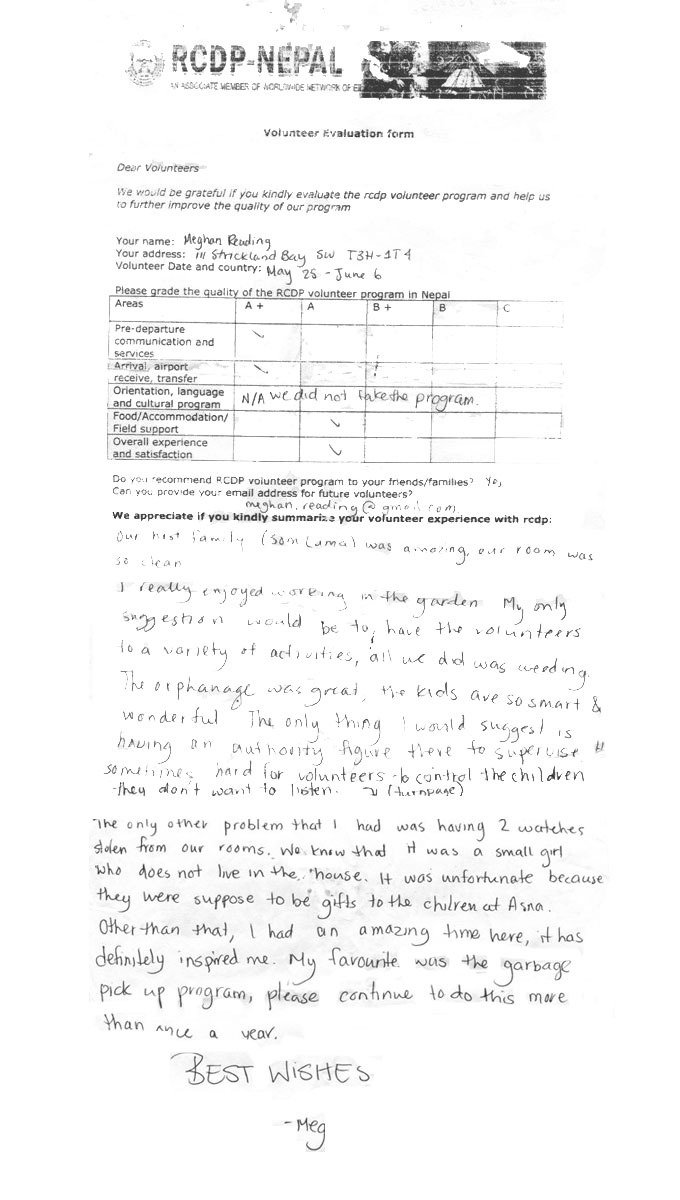 RCDP-NEPAL
AN ASSOCIATE MEMBER OF WORLDWIDE NETWORK OF
Volunteer Evaluation form
Dear Volunteers
We would be grateful if you kindly evaluate the rcdp volunteer program and help us
to further improve the quality of our program
Your name: Meghan Reading
Your address: 111 Strickland Bay SW T3H-1T4
Volunteer Date and country: May 25 - June 6
Please grade the quality of the RCDP volunteer program in Nepal
Areas A + A B + B C
Pre-departure
communication and
services
Arrival, airport
receive, transfer
Orientation, language
and cultural program N/A we did not take the program.
Food/Accommodation/
Field support
Overall experience
and satisfaction
Do you recommend RCDP volunteer program to your friends/families? Yes
Can you provide your email address for future volunteers?
meghan.reading@gmail.com
We appreciate if you kindly summarize your volunteer experience with rcdp:
Our host family (Som Lama) was amazing, our room was
so clean
I really enjoyed working in the garden My only
suggestion would be to, have the volunteers
to a variety of activities, all we did was weeding.
The orphanage was great, the kids are so smart &
wonderful The only thing I would suggest is
having an authority figure there to supervise it
sometimes hard for volunteers to control the children
they don't want to listen. (turnpage)
The only other problem that I had was having 2 watches
stolen from our rooms. We know that it was a small girl
who does not live in the house. It was unfortunate because
they were suppose to be gifts to the chilren at Asna.
Other than that, I had an amazing time here, it has
definitely inspired me. My favourite was the garbage
pick up program, please continue to do this more
than once a year.
BEST WISHES
-Meg